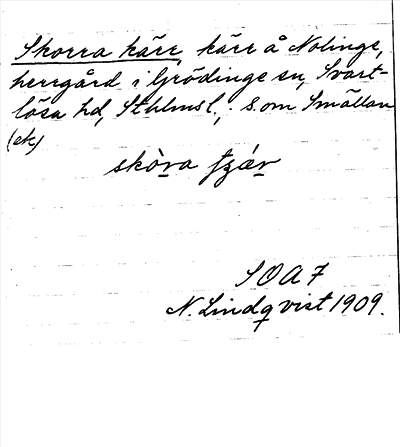 Skorra kärr, kärr å Nolinge,
herrgård i Grödinge sn, Svart-
lösa hd, Sthlmsl.; s. om Smällan
(ek)
skòra
SOA 7
N. Lindqvist 1909.